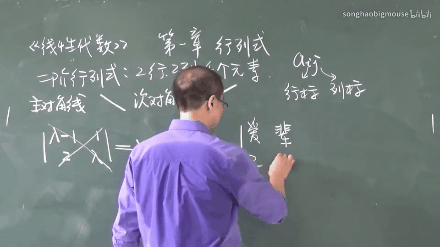 songhaobigmouse bilibili
《线性代数》 第一章 行列式
二阶行列式：2行2列4个元素
aij
行标 列标
主对角线 次对角
λ-1 1
2 λ
爱 辈